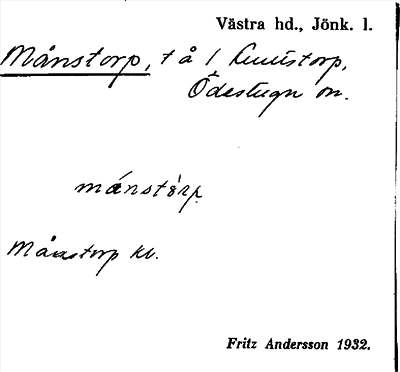 Västra hd., Jönk. l.
Månstorp, t å 1 Knutstorp,
Ödestugu sn.
månstòrp.
Månstorp kv.
Fritz Andersson 1932.